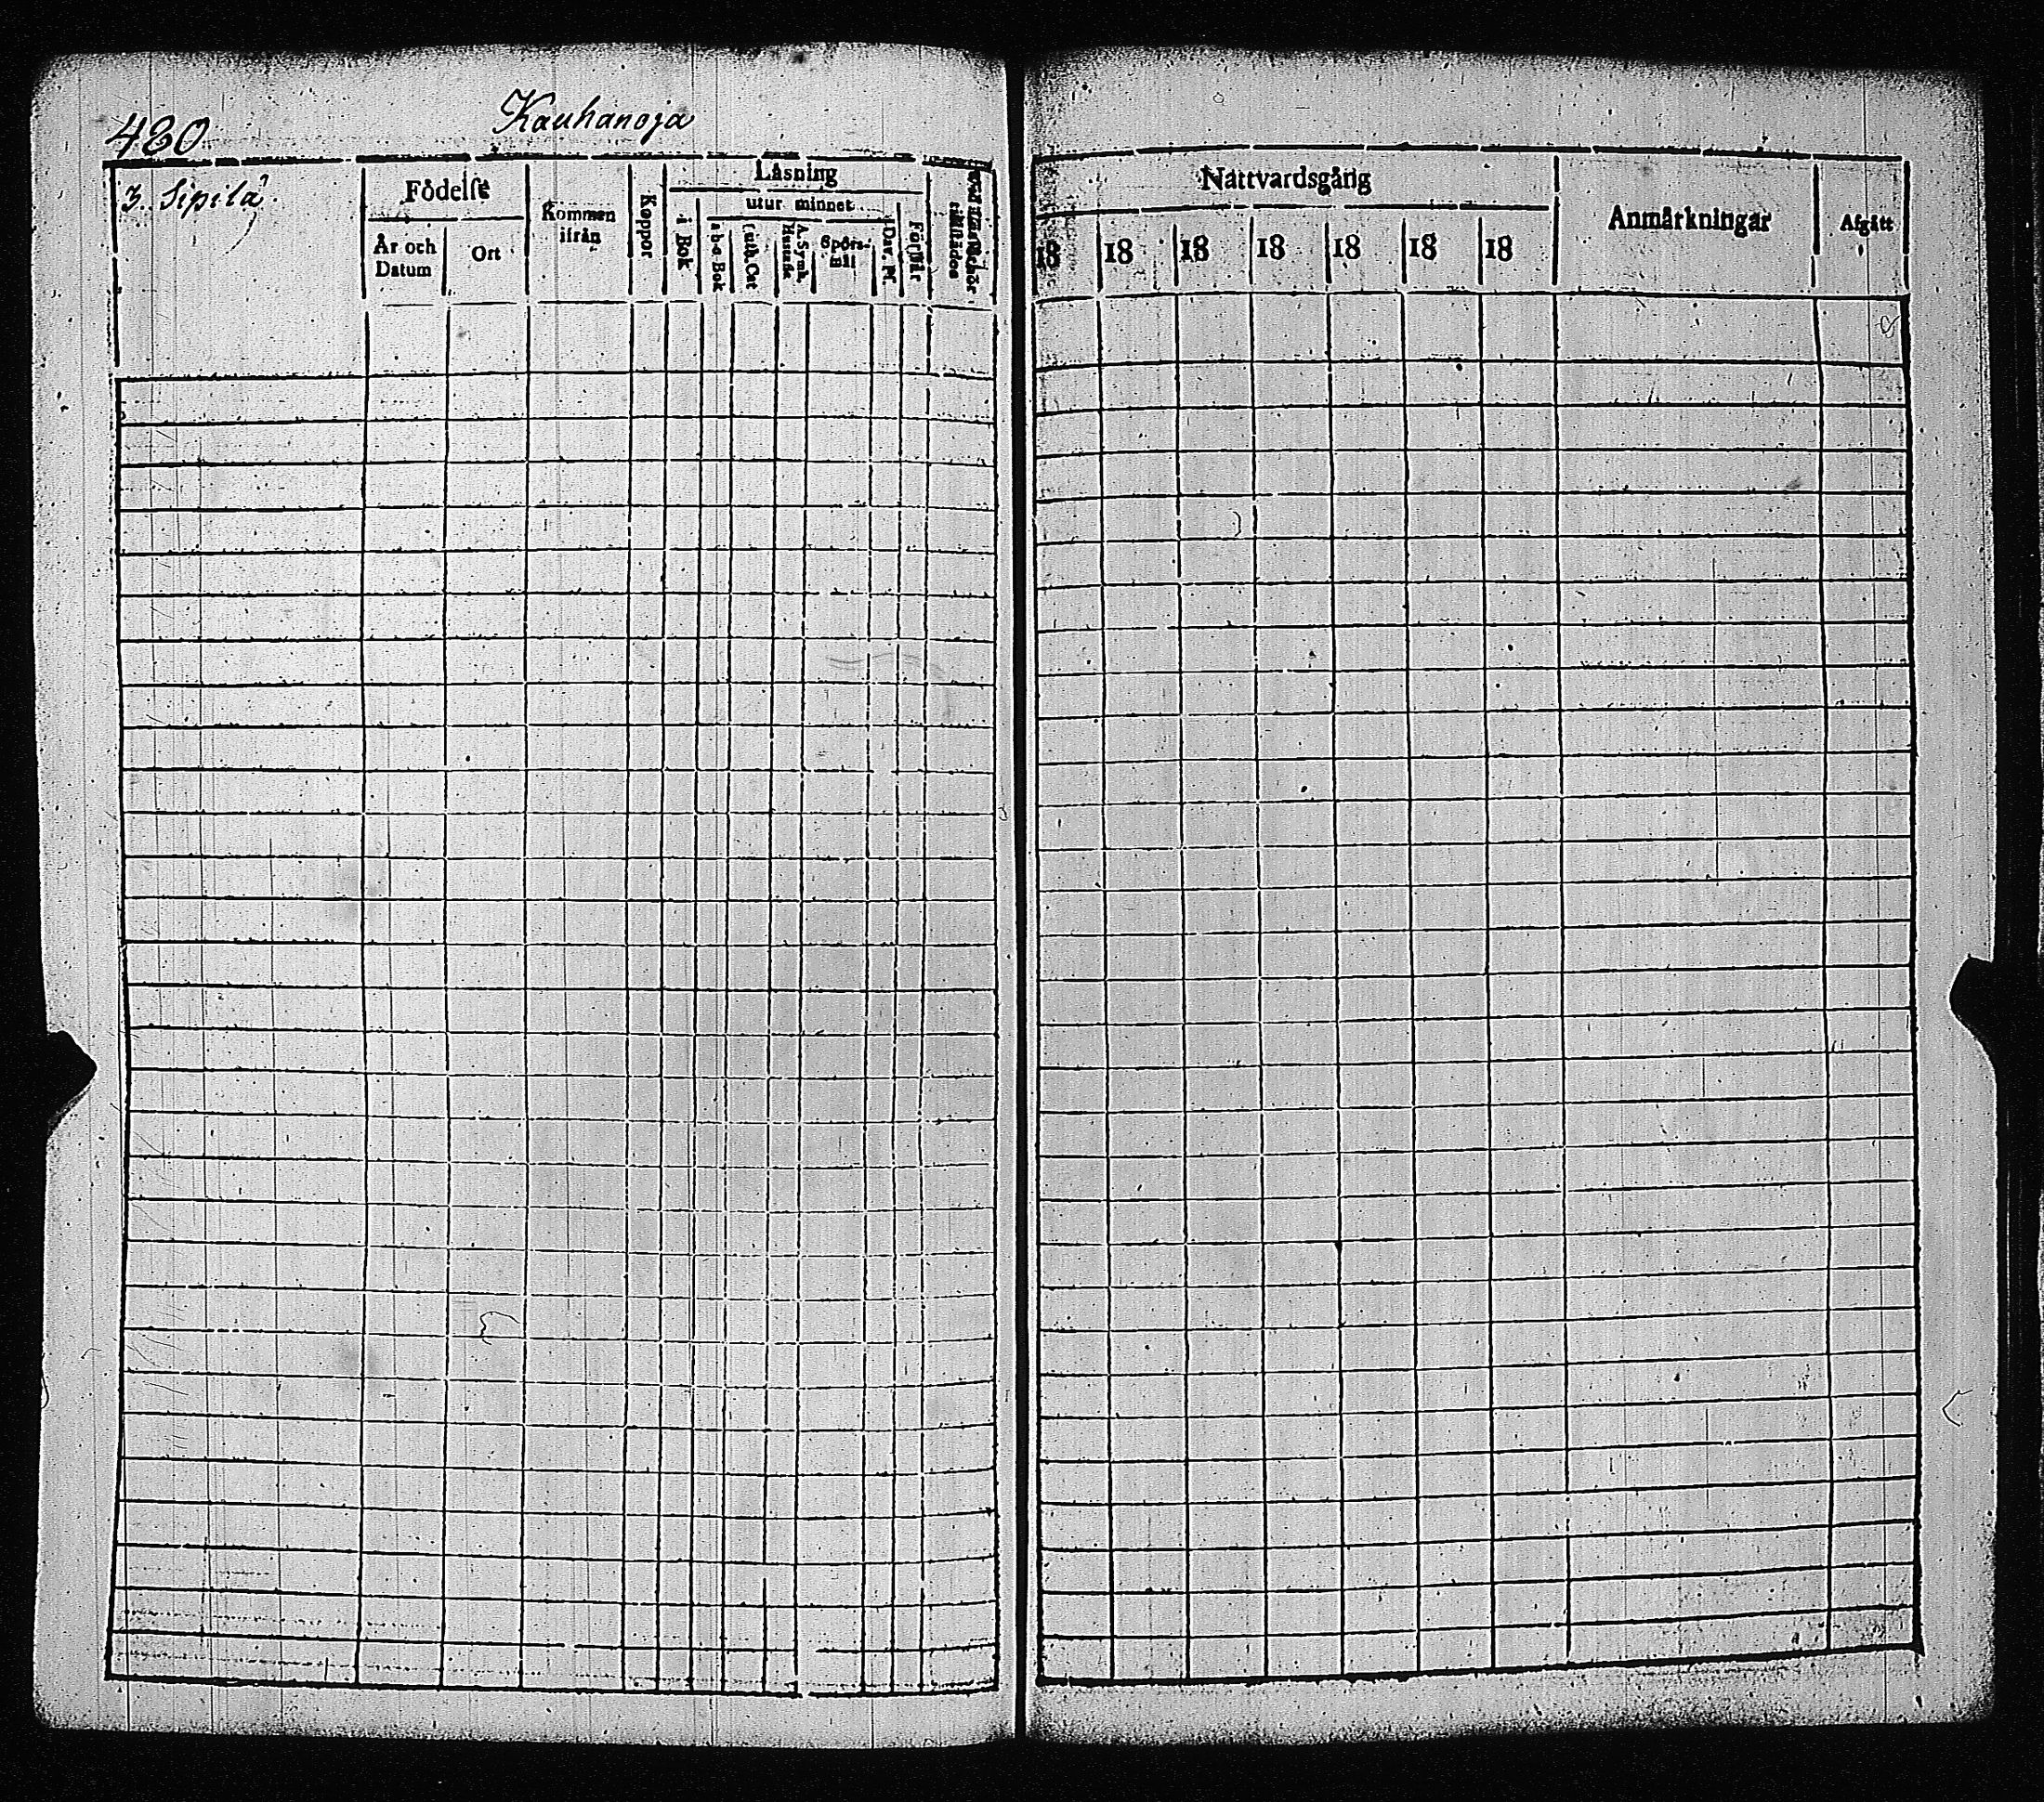 480
Kauhanoja
3. Sipilä.
Födelse
År och Datum
Ort
Kommen ifrån
Koppor
Läsning
i Bok
utur minnet
a-b-c-Bok
Luth. Cat
A. Symb. Hustafl.
Spörs-mål
Dav. Ps.
Förstår
Nattvardsgång
18 18 18 18 18 18 18
Anmärkningar
Afgått